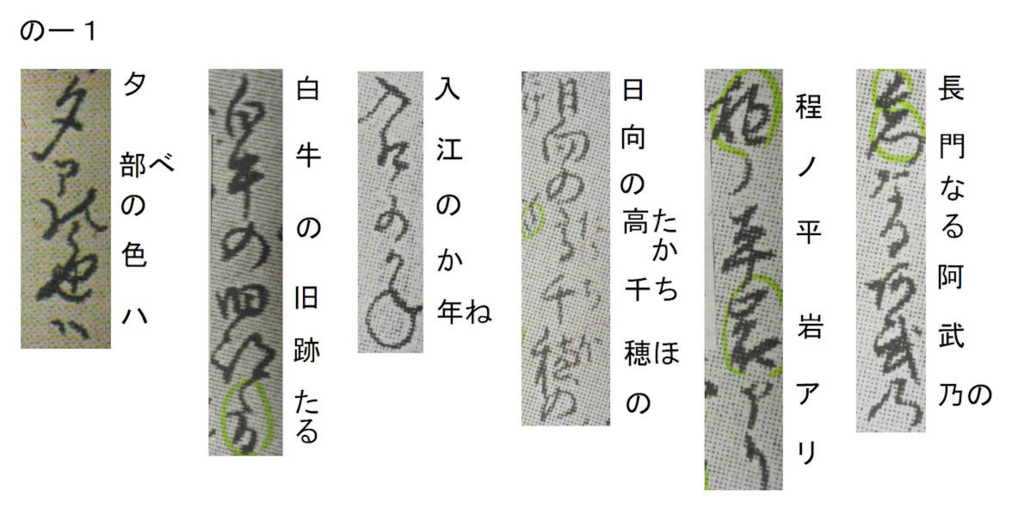 の一１
長門なる阿武乃の
程ノ平岩アリ
日向の高たか千ち穂ほの
入江のか年ね
白牛の旧跡たる
夕部べの色ハ